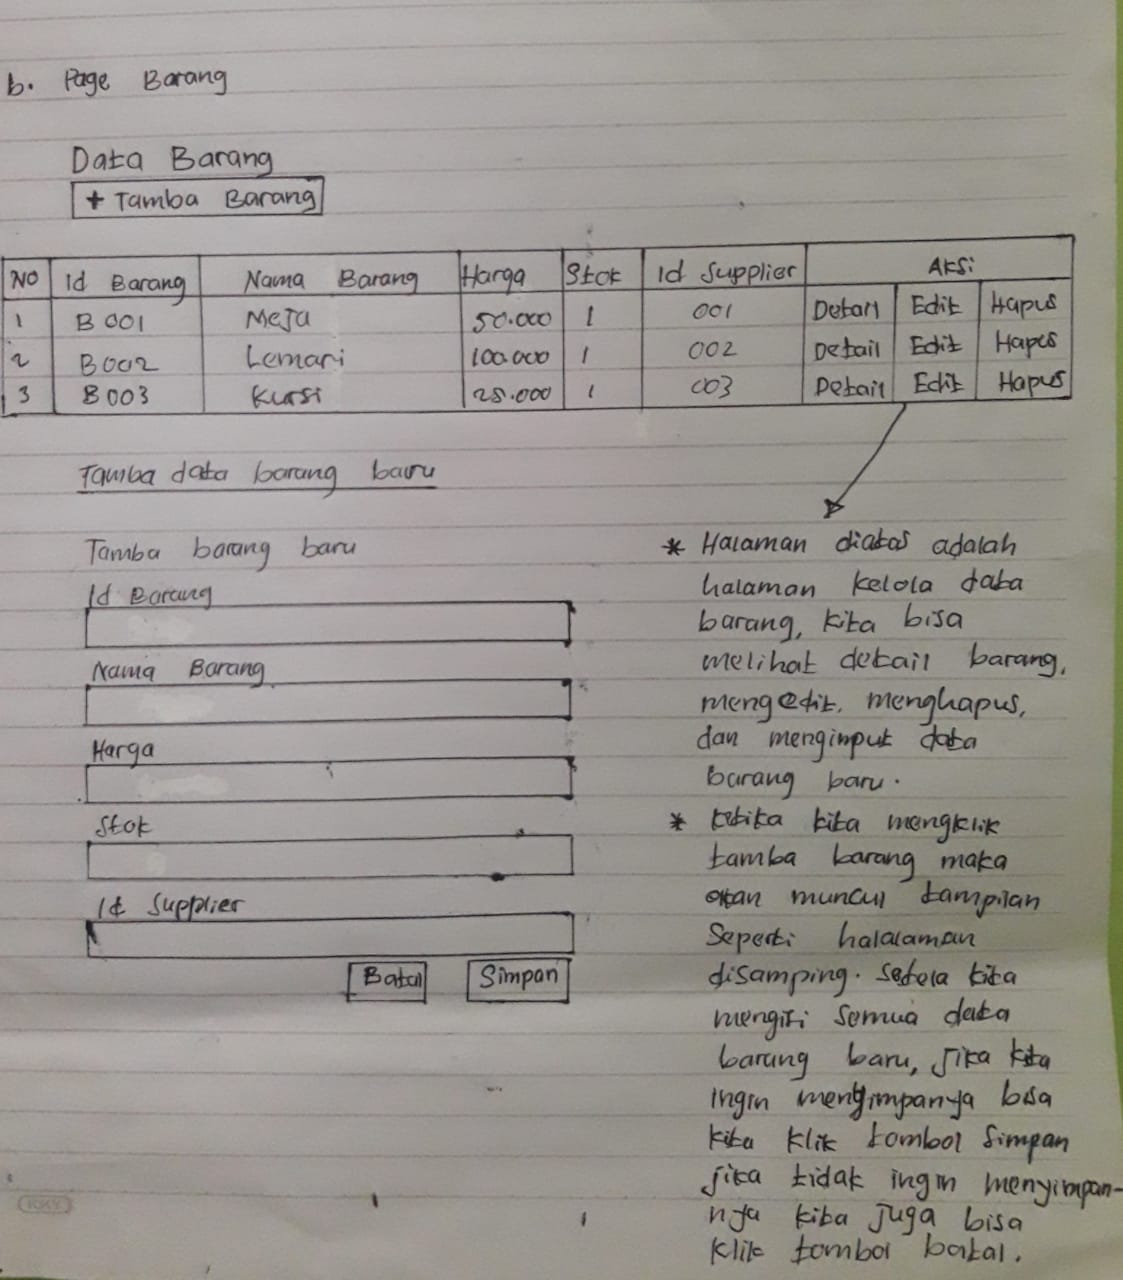 b. Page Barang
Data Barang
+ Tamba Barang
No Id Barang Nama Barang Harga Stok Id Supplier Aksi
1 B001 Meja 50.000 1 001 Detail Edit Hapus
2 B002 Lemari 100.000 1 002 Detail Edit Hapus
3 B003 Kursi 25.000 1 003 Detail Edit Hapus
Tamba data barang baru
Tamba barang baru
Id Barang
Nama Barang
Harga
Stok
Id Supplier
Batal Simpan
* Halaman diatas adalah
halaman kelola data
barang, kita bisa
melihat detail barang,
mengedit, menghapus,
dan menginput data
barang baru.
* ketika kita mengklik
tamba barang maka
akan muncul tampilan
Seperti halalaman
disamping. setela kita
mengisi semua data
barang baru, jika kita
ingin menyimpanya bisa
kita klik tombol simpan
jika tidak ingin menyimpan-
nya kita juga bisa
klik tombol batal.